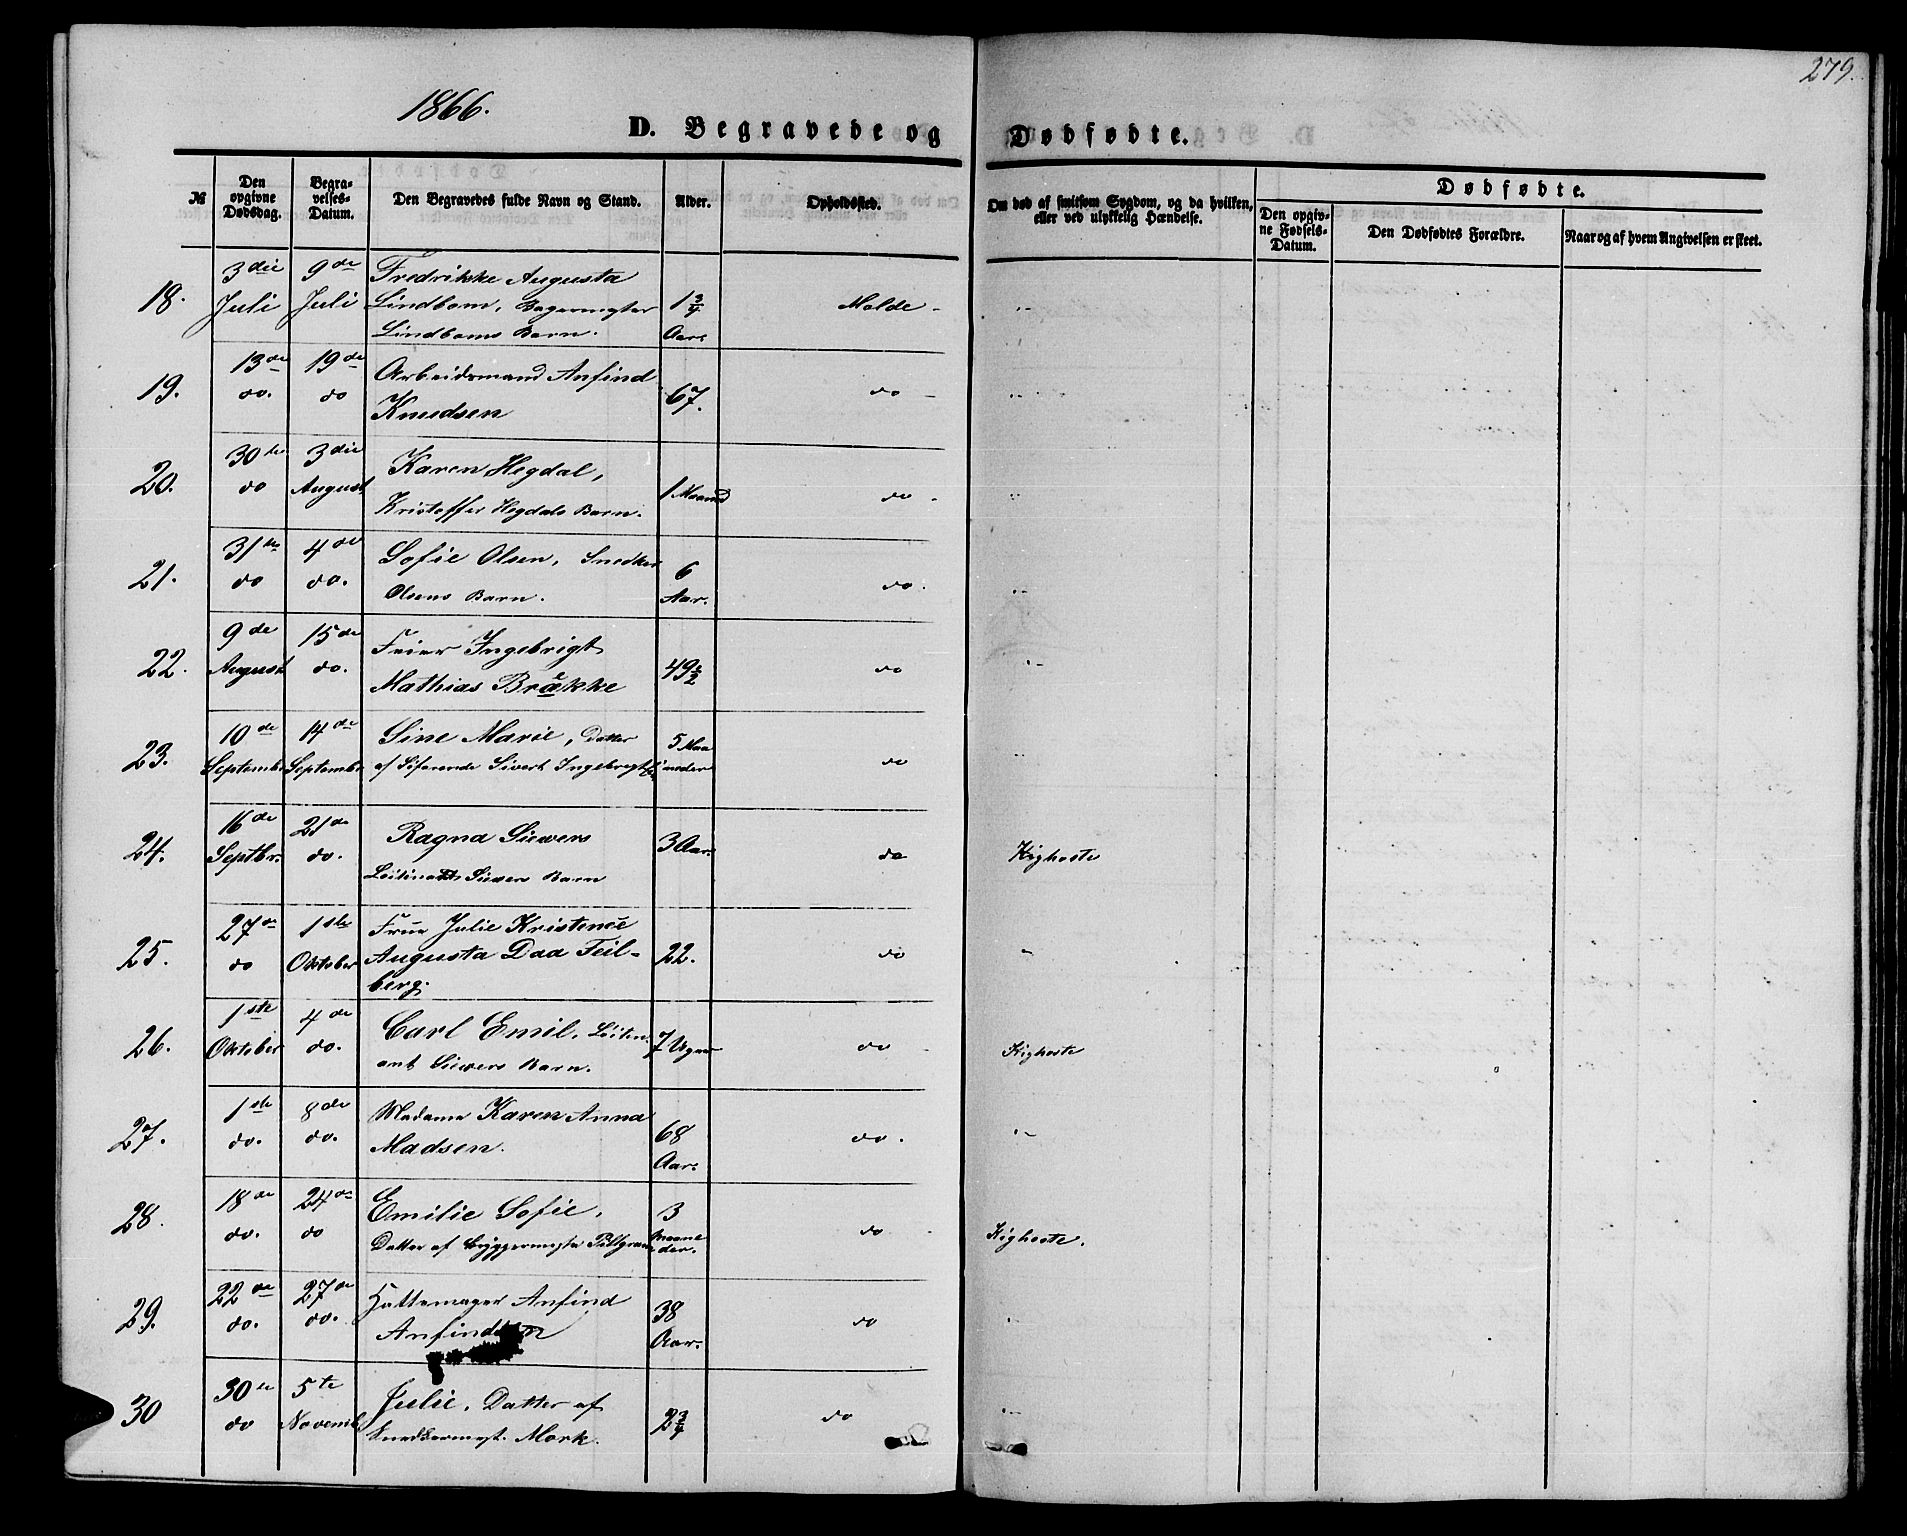 279.
1866.
D. Begravede og Dødfødte.
№
Den opgivne Dødsdag.
Begravelses-Datum.
Den Begravedes fulde Navn og Stand.
Alder.
Opholdssted.
Om død af smitsom Sygdom, og da hvilken, eller ved ulykkelig Hændelse.
Dødfødte.
Den opgivne Fødsels-Datum.
Den Dødfødtes Forældre.
Naar og af hvem Angivelsen er skeet.
18. 3die Juli 9de Juli Fredrikke Augusta
Lindbom, Bagermester
Lindboms Barn. 1 3/4 Aar. Molde -
19. 13de do. 19de do Arbeidsmand Anfind
Knudsen 67. do -
20. 30te do 3die August Karen Hegdal,
Kristoffer Hegdals Barn. 1 Maaned do -
21. 31te do 4de do. Sofie Olsen, Snedker
Olsens Barn. 6 Aar. do.
22. 9de August 15de do. Feier Ingebrigt
Mathias Brække 49 1/2 do
23. 10de Septembr 14de Septembr Sine Marie, Datter
af Sivert Ingebrigts 5 Maaneder do
24. 16de Septbr. 21de do. Ragna Siewers
Siewers Barn 3 Aar. do Kighoste
25. 27de do 1ste Oktober Frue Julie Kristence
Augusta Daa Feil-
berg. 22. do
26. 1ste Oktober 4de do. Carl Emil, Løiten-
ant Siewers Barn. 7 Uger do Kighoste
27. 1ste do. 8de do. Madame Karen Anna
Madsen. 68 Aar. do.
28. 18de do. 24de do Emilie Sofie,
Datter af Byggermester 3 Maaneder. do Kighoste.
29. 22de do. 27de do. Hattemager Anfind
Anfindsen 38 Aar. do
30 30te do 5te Novembr Julie, Datter af
Snedkermest. Mork. 2 3/4 do